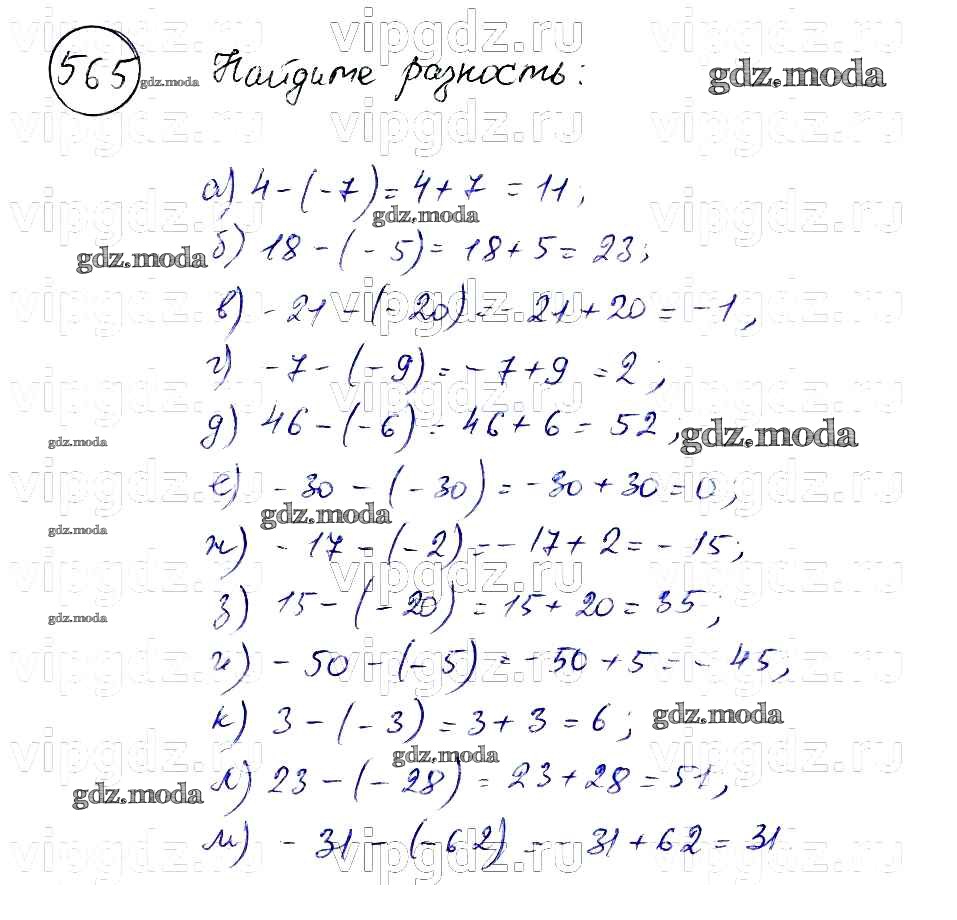 565 Найдите разность:
а) 4 - (-7) = 4 + 7 = 11;
б) 18 - (-5) = 18 + 5 = 23;
в) -21 - (-20) = -21 + 20 = -1;
г) -7 - (-9) = -7 + 9 = 2;
д) 46 - (-6) = 46 + 6 = 52;
е) -30 - (-30) = -30 + 30 = 0;
ж) -17 - (-2) = -17 + 2 = -15;
з) 15 - (-20) = 15 + 20 = 35;
и) -50 - (-5) = -50 + 5 = -45;
к) 3 - (-3) = 3 + 3 = 6;
л) 23 - (-28) = 23 + 28 = 51;
м) -31 - (-62) = -31 + 62 = 31.
vipgdz.ru
gdz.moda